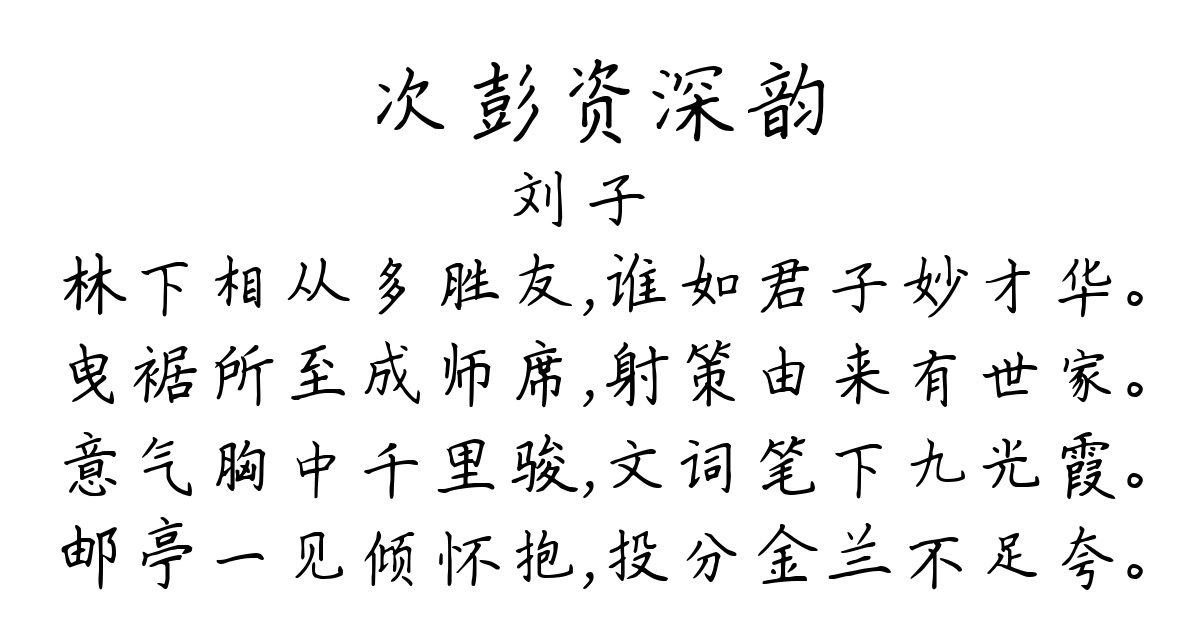 次彭资深韵
刘子
林下相从多胜友,谁如君子妙才华。
曳裾所至成师席,射策由来有世家。
意气胸中千里骏,文词笔下九光霞。
邮亭一见倾怀抱,投分金兰不足夸。